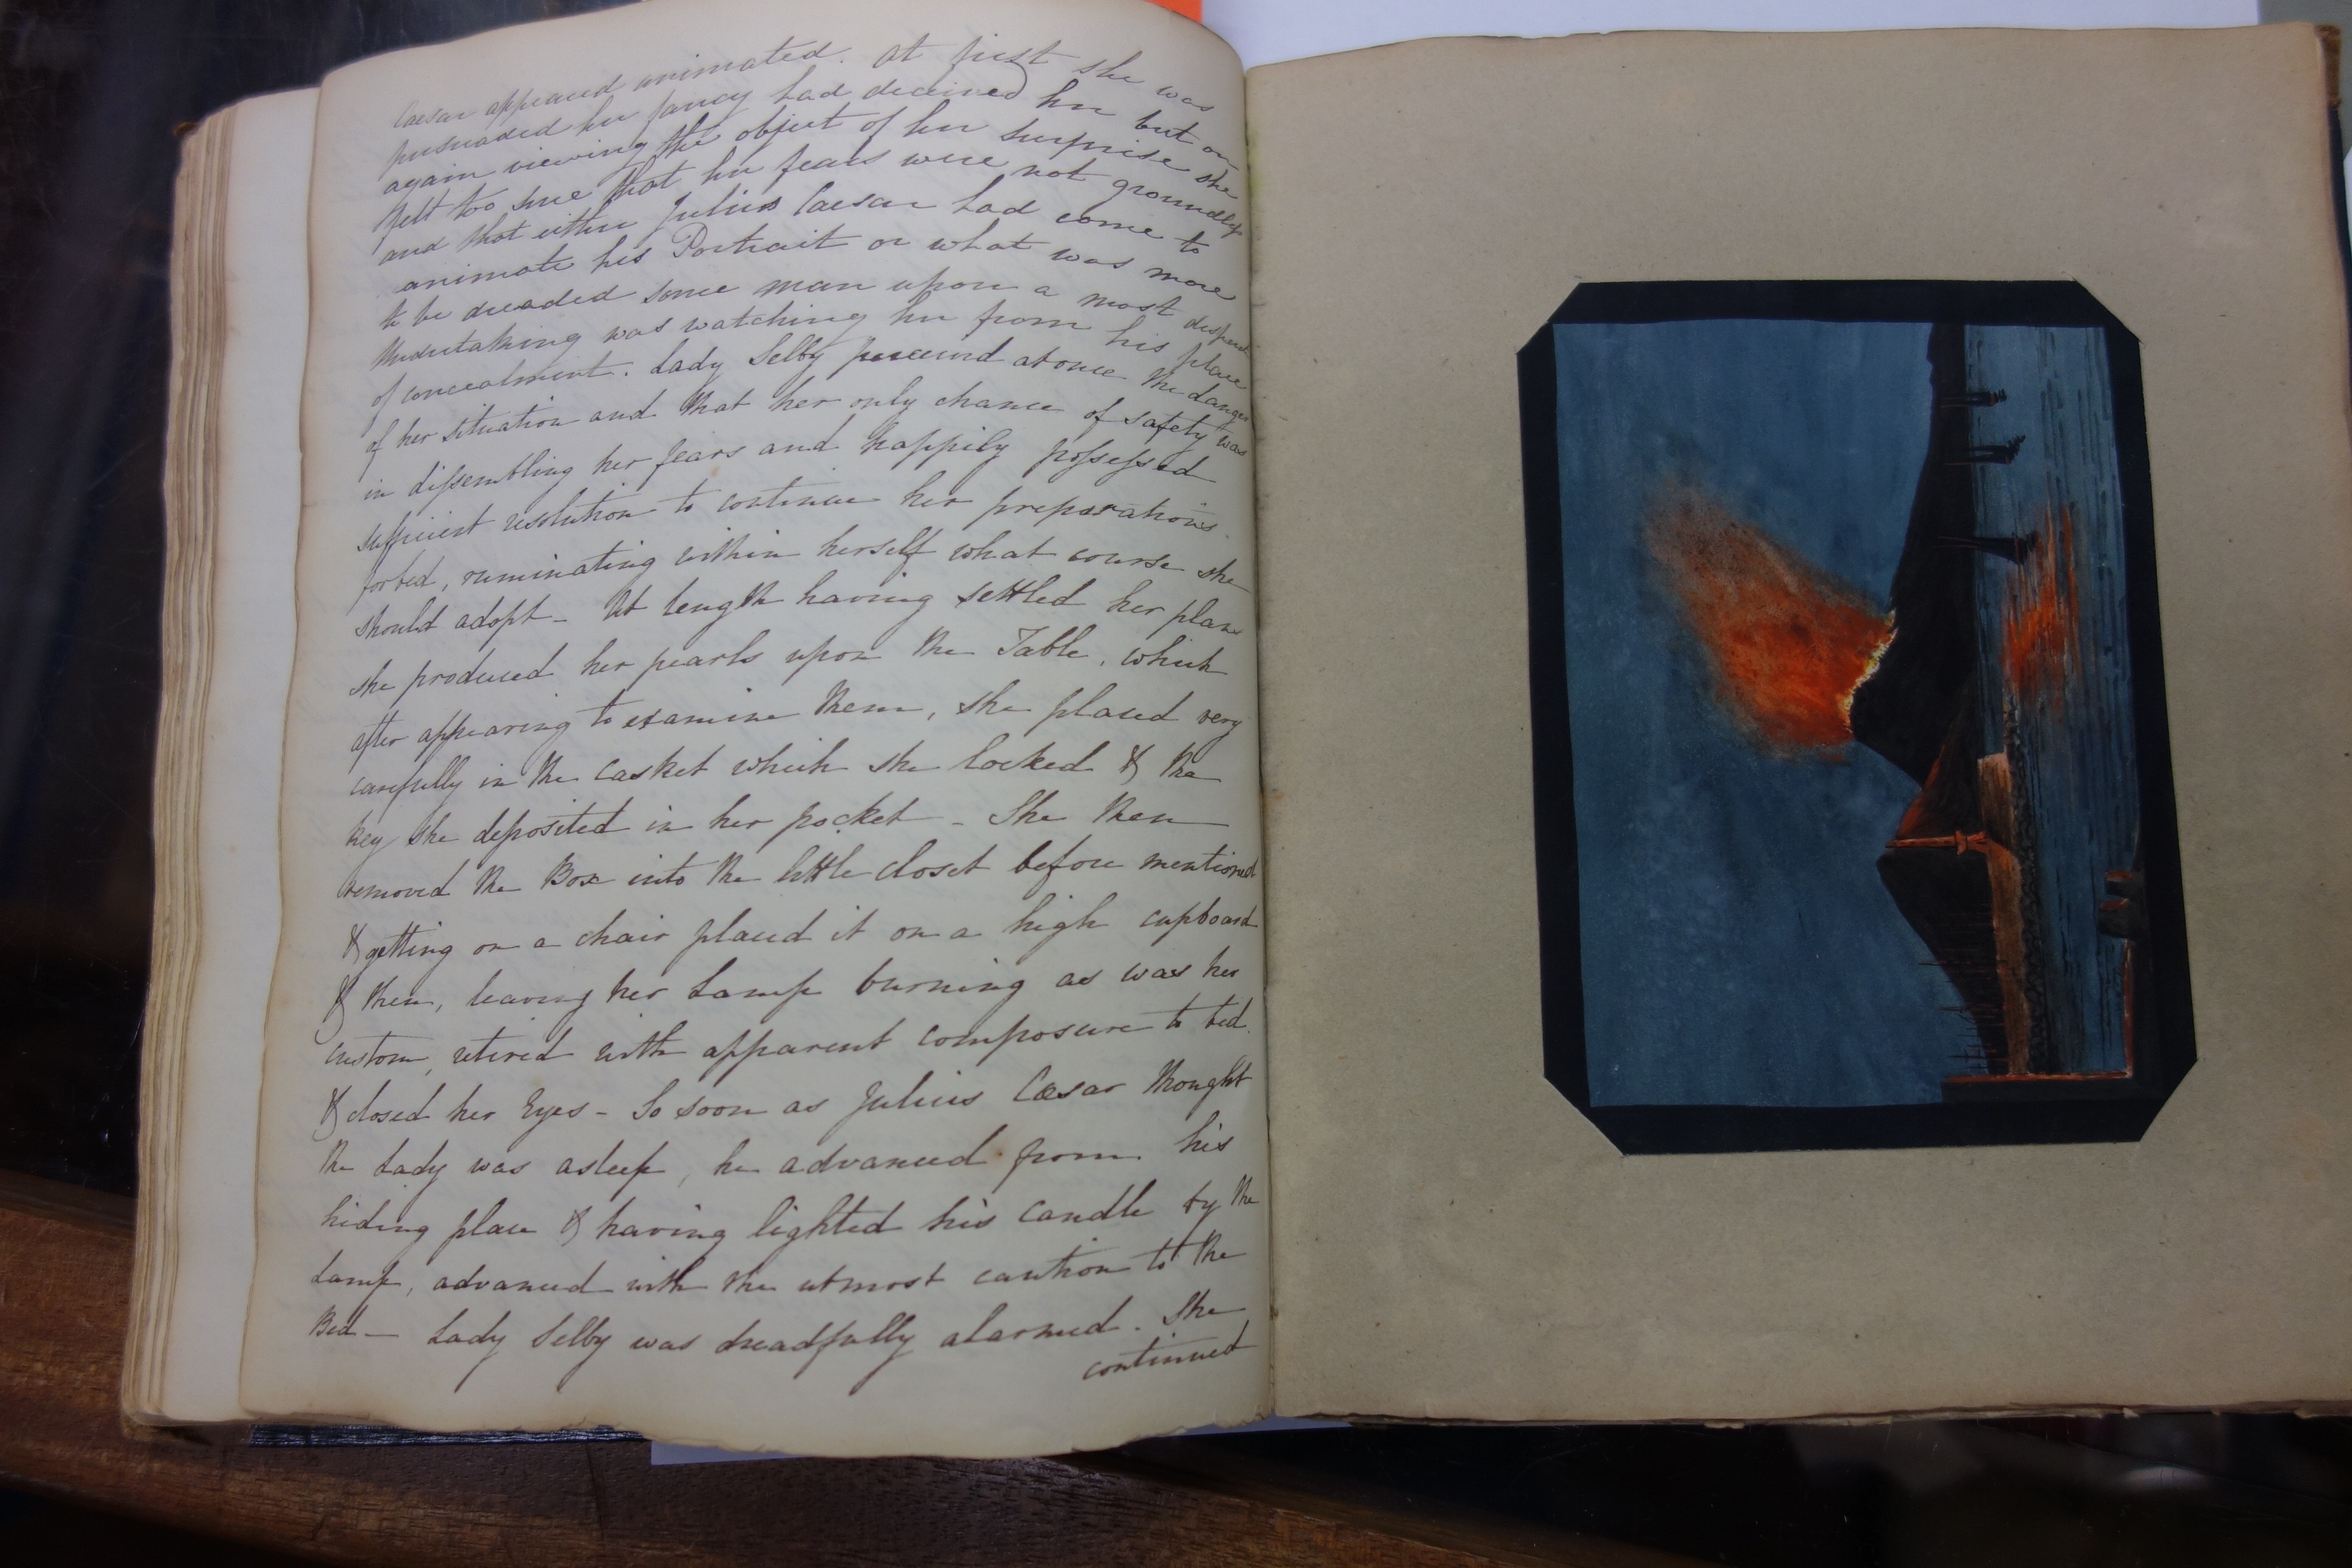 Caesar appeared animated. At first she was
persuaded her fancy had deceived her but on
again viewing the object of her surprise she
felt too sure that her fears were not groundless
and that either Julius Caesar had come to
animate his Portrait or what was more
to be dreaded some man upon a most
undertaking was watching her from his place
of concealment. Lady Selby perceived at once the danger
of her situation and that her only chance of safety was
in dissembling her fears and happily possessed
sufficient resolution to continue her preparations
for bed, ruminating within herself what course she
should adopt - At length having settled her plan
she produced her pearls upon the Table, which
after appearing to examine them, she placed very
carefully in the Casket which she locked & the
key she deposited in her pocket - She then
removed the Box into the little closet before mentioned
& getting on a chair placed it on a high cupboard
& then, leaving her Lamp burning as was her
custom, retired with apparent composure to bed.
& closed her Eyes - So soon as Julius Cæsar thought
the Lady was asleep, he advanced from his
hiding place & having lighted his Candle by the
Lamp, advanced with the utmost caution to the
Bed - Lady Selby was dreadfully alarmed. She
continued